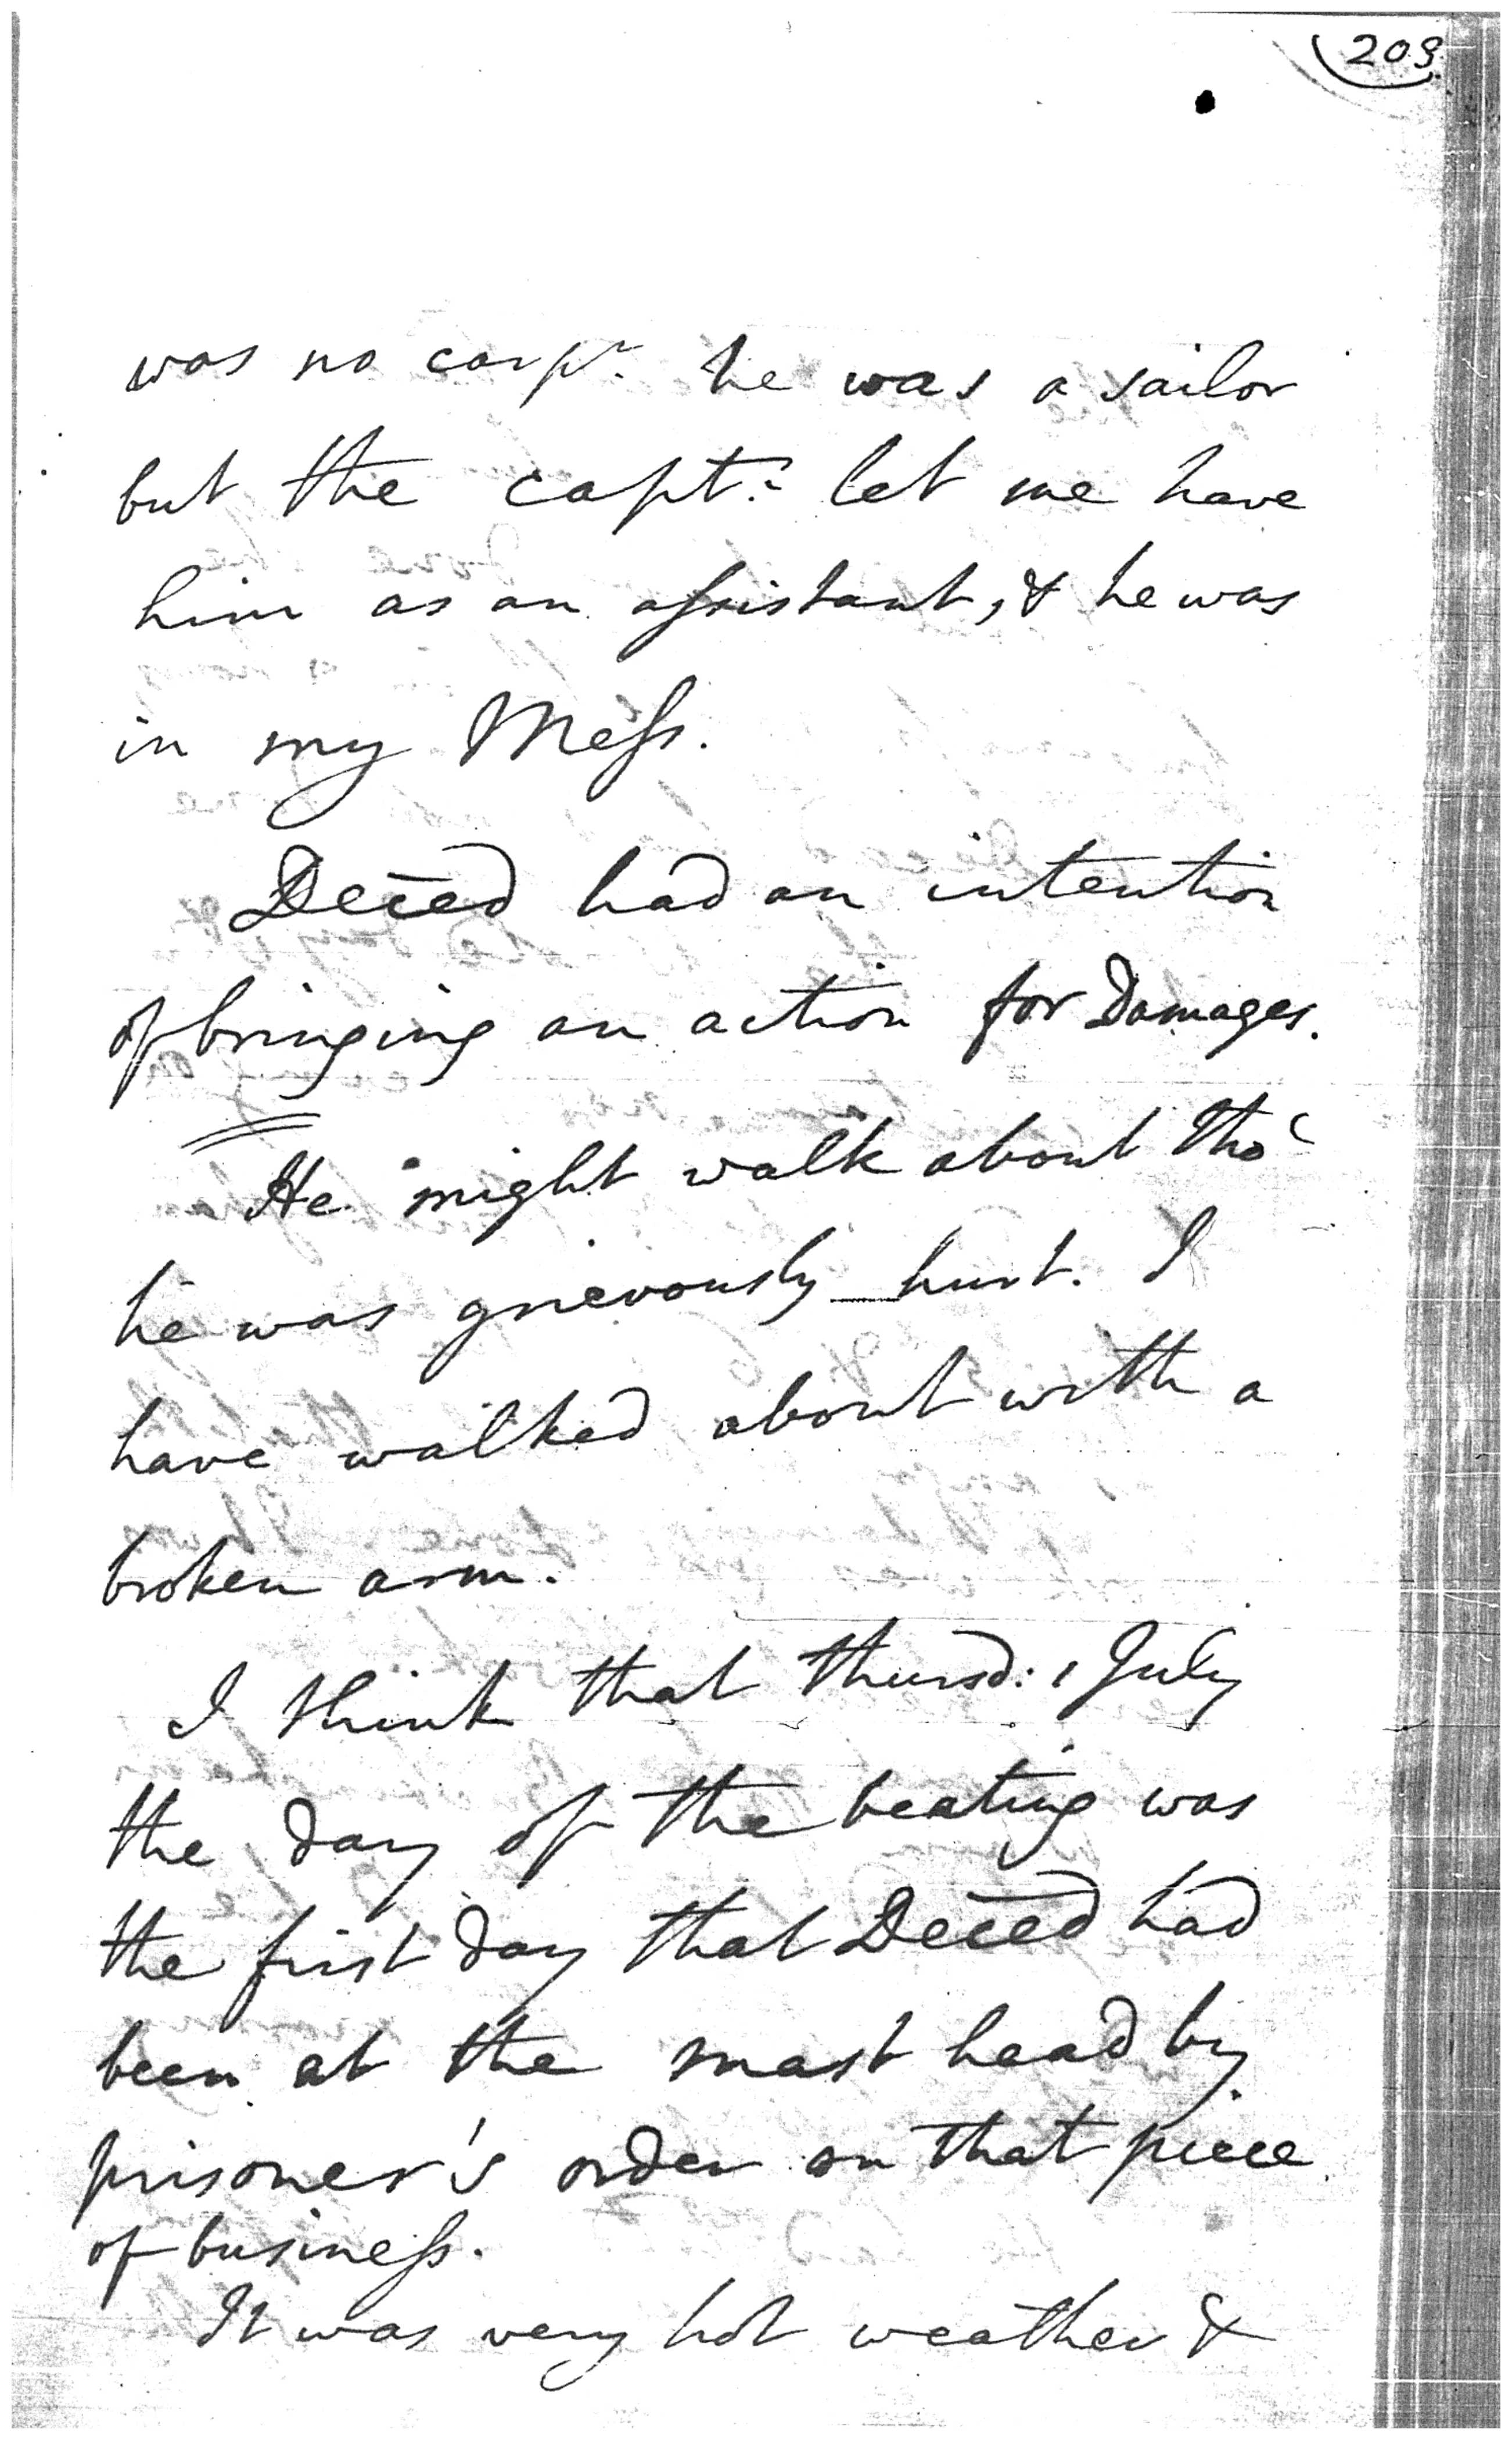 209.
was no carpr. he was a sailor
but the captn. let me have
him as an assistant, & he was
in my Mess.
Deced had an intention
of bringing an action for Damages.
He might walk about tho'
he was grievously hurt. I
have walked about with a
broken arm.
I think that thursd: 1 July
the day of the beating was
the first day that Deced had
been at the mast head by
prisoner's order on that piece
of business.
It was very hot weather &